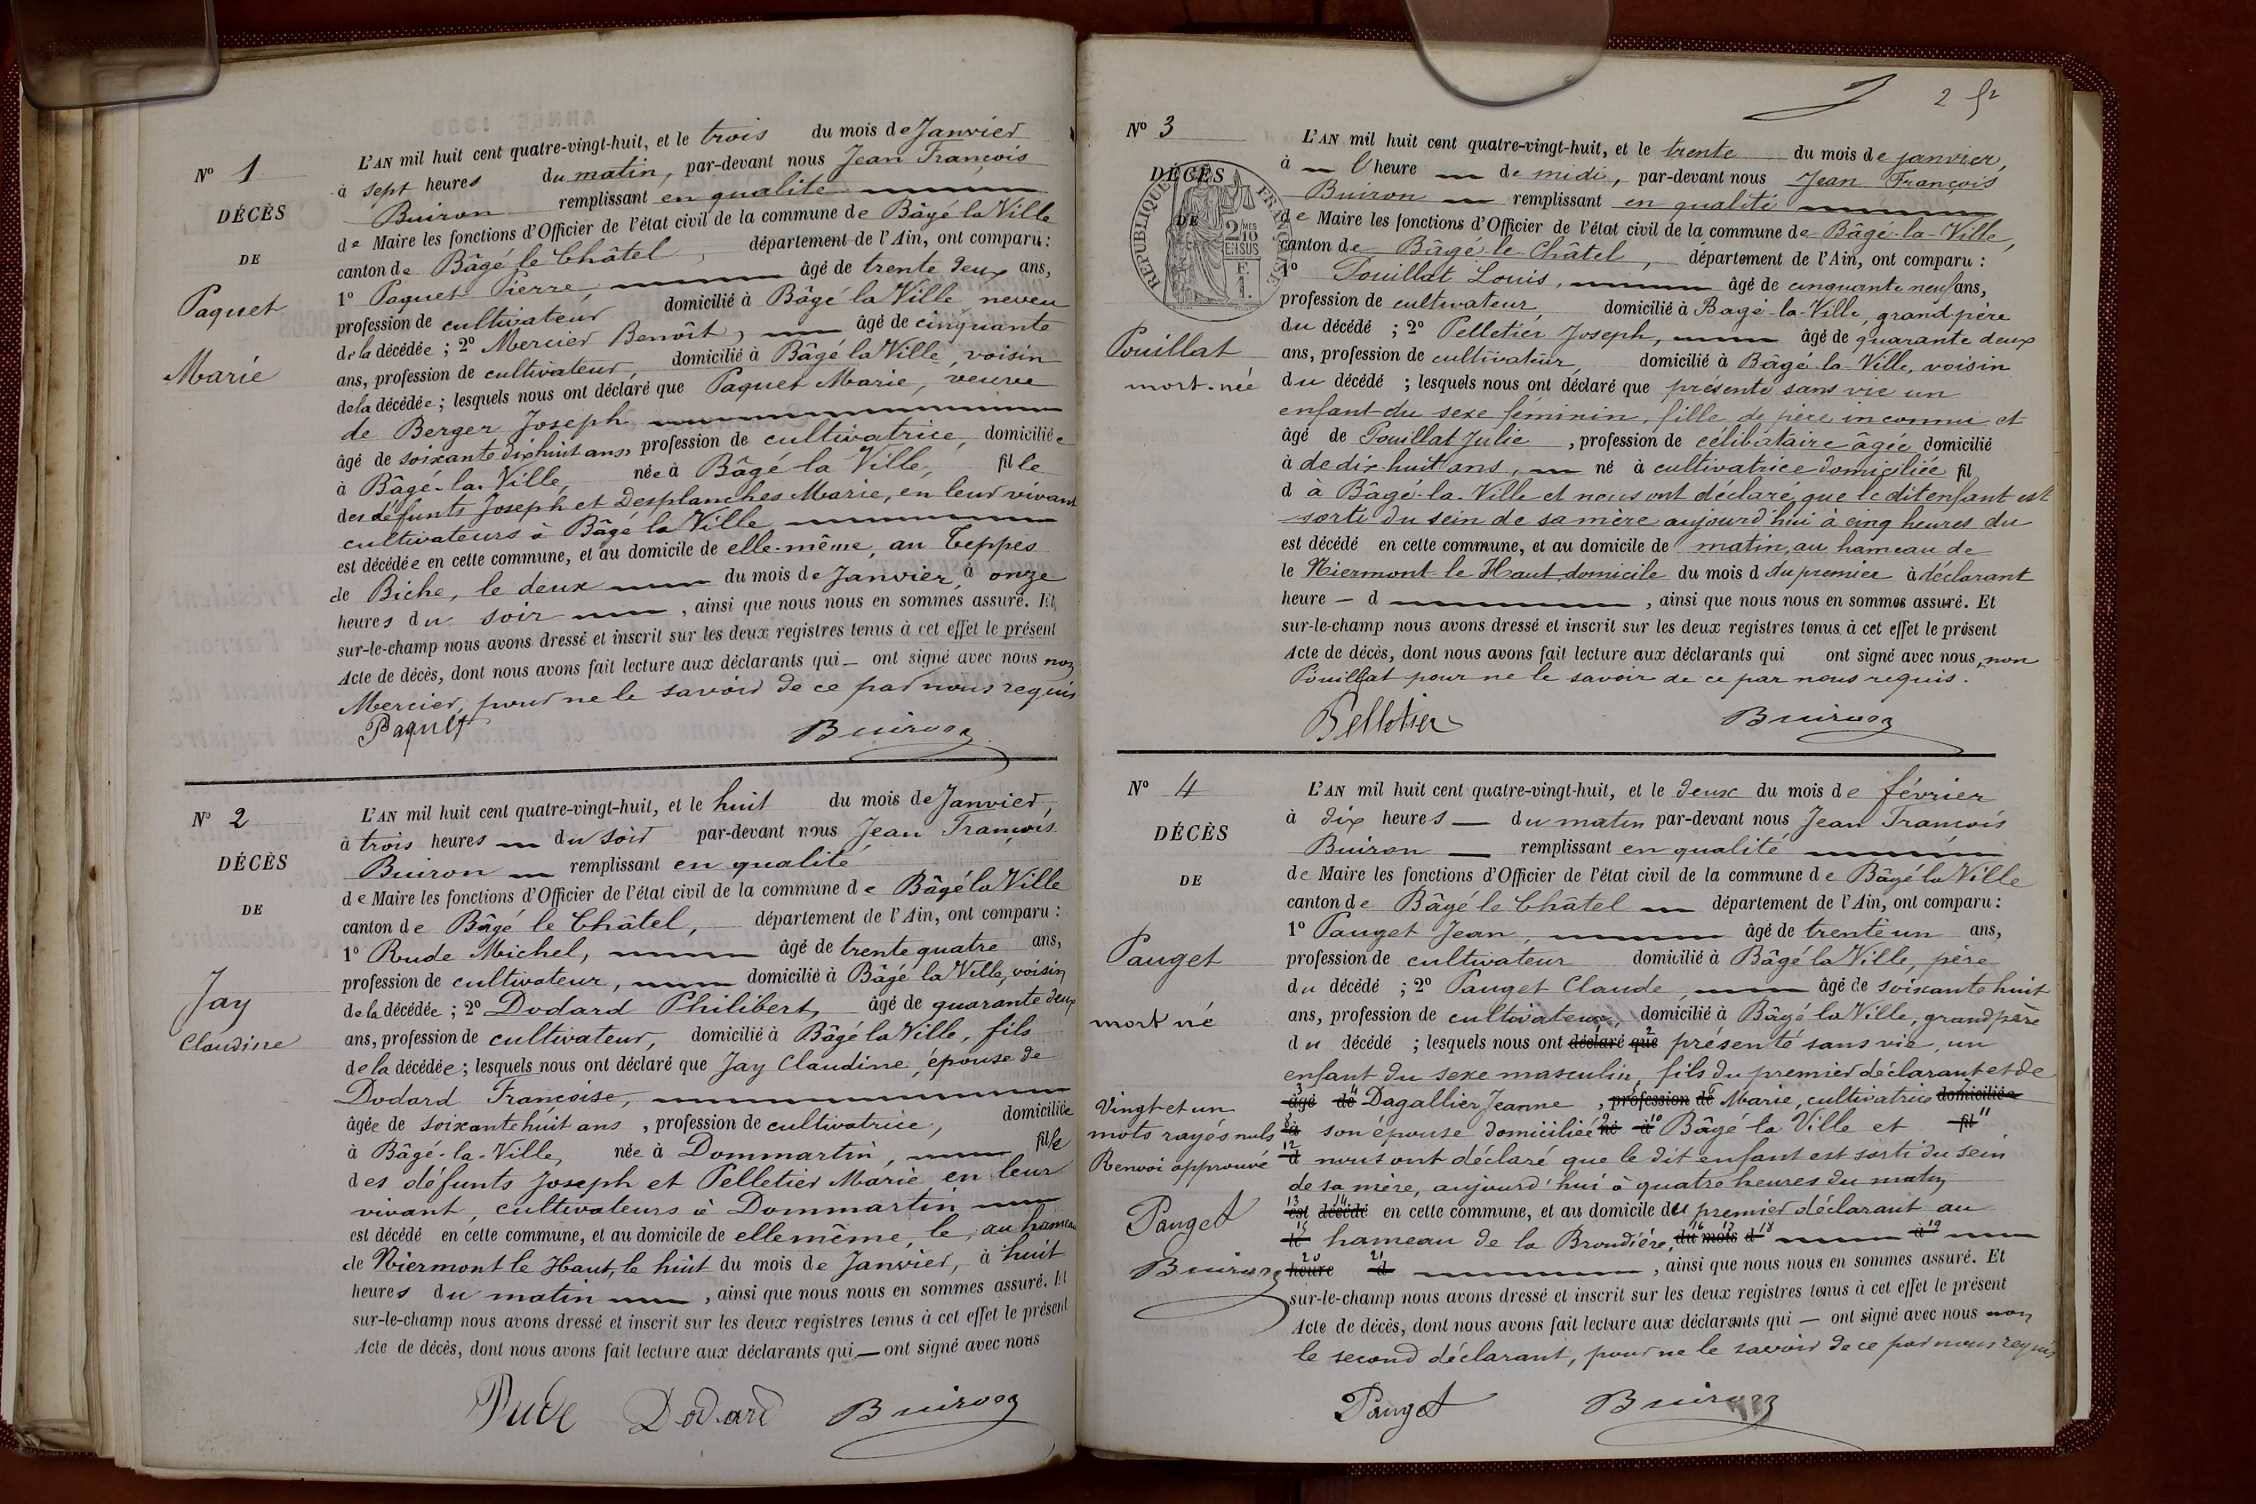 N° 1
DÉCÈS
DE
Paquet
Marie
L'AN mil huit cent quatre-vingt-huit, et le trois du mois de Janvier
à sept heures du matin, par-devant nous Jean François
Buiron remplissant en qualité
de Maire les fonctions d'Officier de l'état civil de la commune de Bâgé la Ville
canton de Bâgé le Châtel, département de l'Ain, ont comparu :
1° Paquet Pierre, âgé de trente deux ans,
profession de cultivateur domicilié à Bâgé la Ville neveu
de la décédée ; 2° Mercier Benoît, âgé de cinquante
ans, profession de cultivateur, domicilié à Bâgé la Ville, voisin
de la décédée ; lesquels nous ont déclaré que Paquet Marie, veuve
de Berger Joseph
âgé de soixante dix huit ans, profession de cultivatrice, domiciliée
à Bâgé-la-Ville, née à Bâgé la Ville, fille
des défunts Joseph et Desplanches Marie, en leur vivant
cultivateurs à Bâgé la Ville
est décédée en cette commune, et au domicile de elle-même, au Teppes
de Biche, le deux du mois de Janvier, à onze
heures du soir, ainsi que nous nous en sommes assuré. Et
sur-le-champ nous avons dressé et inscrit sur les deux registres tenus à cet effet le présent
Acte de décès, dont nous avons fait lecture aux déclarants qui — ont signé avec nous non
Mercier, pour ne le savoir de ce par nous requis
Paquet Buiron
N° 2
DÉCÈS
DE
Jay
Claudine
L'AN mil huit cent quatre-vingt-huit, et le huit du mois de Janvier
à trois heures — du soir par-devant nous Jean François
Buiron — remplissant en qualité
de Maire les fonctions d'Officier de l'état civil de la commune de Bâgé la Ville
canton de Bâgé le Châtel, département de l'Ain, ont comparu :
1° Rude Michel, âgé de trente quatre ans,
profession de cultivateur, domicilié à Bâgé la Ville, voisin
de la décédée ; 2° Dodard Philibert, âgé de quarante deux
ans, profession de cultivateur, domicilié à Bâgé la Ville, fils
de la décédée ; lesquels nous ont déclaré que Jay Claudine, épouse de
Dodard Françoise,
âgée de soixante huit ans, profession de cultivatrice, domiciliée
à Bâgé-la-Ville, née à Dommartin, fille
des défunts Joseph et Pelletier Marie en leur
vivant, cultivateurs à Dommartin
est décédé en cette commune, et au domicile de elle même, le, au hameau
de Niermont le Haut, le huit du mois de Janvier, à huit
heures du matin, ainsi que nous nous en sommes assuré. Et
sur-le-champ nous avons dressé et inscrit sur les deux registres tenus à cet effet le présent
Acte de décès, dont nous avons fait lecture aux déclarants qui — ont signé avec nous
Rude Dodard Buiron
2
N° 3
DÉCÈS
DE
RÉPUBLIQUE FRANÇAISE
2/10MES
EN SUS
F.
1.
Pouillat
mort-née
L'AN mil huit cent quatre-vingt-huit, et le trente du mois de janvier,
à — l'heure — de midi, par-devant nous Jean François
Buiron — remplissant en qualité
de Maire les fonctions d'Officier de l'état civil de la commune de Bâgé-la-Ville,
canton de Bâgé-le-Châtel, département de l'Ain, ont comparu :
1° Pouillat Louis, âgé de cinquante neuf ans,
profession de cultivateur, domicilié à Bagé-la-Ville, grand père
du décédé ; 2° Pelletier Joseph, âgé de quarante deux
ans, profession de cultivateur, domicilié à Bâgé-la-Ville, voisin
du décédé ; lesquels nous ont déclaré que présenté sans vie un
enfant du sexe féminin, fille de père inconnu et
âgé de Pouillat Julie, profession de célibataire âgée domicilié
à de dix-huit ans, — né à cultivatrice domiciliée fil
d à Bâgé-la-Ville et nous ont déclaré que le dit enfant est
sorti du sein de sa mère aujourd'hui à cinq heures du
est décédé en cette commune, et au domicile de matin, au hameau de
le Niermont-le-Haut domicile du mois d du premier à déclarant
heure — d, ainsi que nous nous en sommes assuré. Et
sur-le-champ nous avons dressé et inscrit sur les deux registres tenus à cet effet le présent
Acte de décès, dont nous avons fait lecture aux déclarants qui ont signé avec nous, non
Pouillat pour ne le savoir de ce par nous requis.
Pelletier Buiron
N° 4
DÉCÈS
DE
Pauget
mort né
Vingt et un
mots rayés nuls
Renvoi approuvé
Pauget
Buiron
L'AN mil huit cent quatre-vingt-huit, et le deux du mois de février
à dix heures — du matin par-devant nous Jean François
Buiron — remplissant en qualité
de Maire les fonctions d'Officier de l'état civil de la commune de Bâgé la Ville
canton de Bâgé le Châtel — département de l'Ain, ont comparu :
1° Pauget Jean, âgé de trente un ans,
profession de cultivateur domicilié à Bâgé la Ville, père
du décédé ; 2° Pauget Claude, âgé de soixante huit
ans, profession de cultivateur, domicilié à Bâgé la Ville, grand père
du décédé ; lesquels nous ont déclaré que 2 présenté sans vie, un
enfant du sexe masculin, fils du premier déclarant et de
3 âgé 4 de Dagallier Jeanne, profession de Marie, cultivatrice domiciliée
8 à son épouse domiciliée né 9 à 10 Bâgé la Ville et fil 11
12 d nous ont déclaré que le dit enfant est sorti du sein
de sa mère, aujourd'hui à quatre heures du matin
13 est 14 décédé en cette commune, et au domicile du premier déclarant au
15 le hameau de la Broudière, du 16 mois 17 d 18 à 19
20 heure 21 d, ainsi que nous nous en sommes assuré. Et
sur-le-champ nous avons dressé et inscrit sur les deux registres tenus à cet effet le présent
Acte de décès, dont nous avons fait lecture aux déclarants qui — ont signé avec nous non
le second déclarant, pour ne le savoir de ce par nous requis
Pauget Buiron